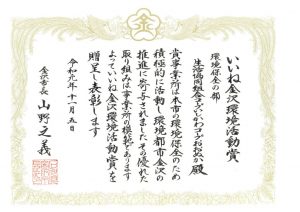 いいね金沢環境活動賞
環境保全の部
生活協同組合コープいしかわ 殿
貴事業所は本市の環境保全のため
積極的に活動し環境都市金沢の
推進に寄与されましたその優れた
取り組みは事業所の模範であります
よっていいね金沢環境活動賞を
贈呈し表彰します
令和元年十一月五日
金沢市長 山野之義